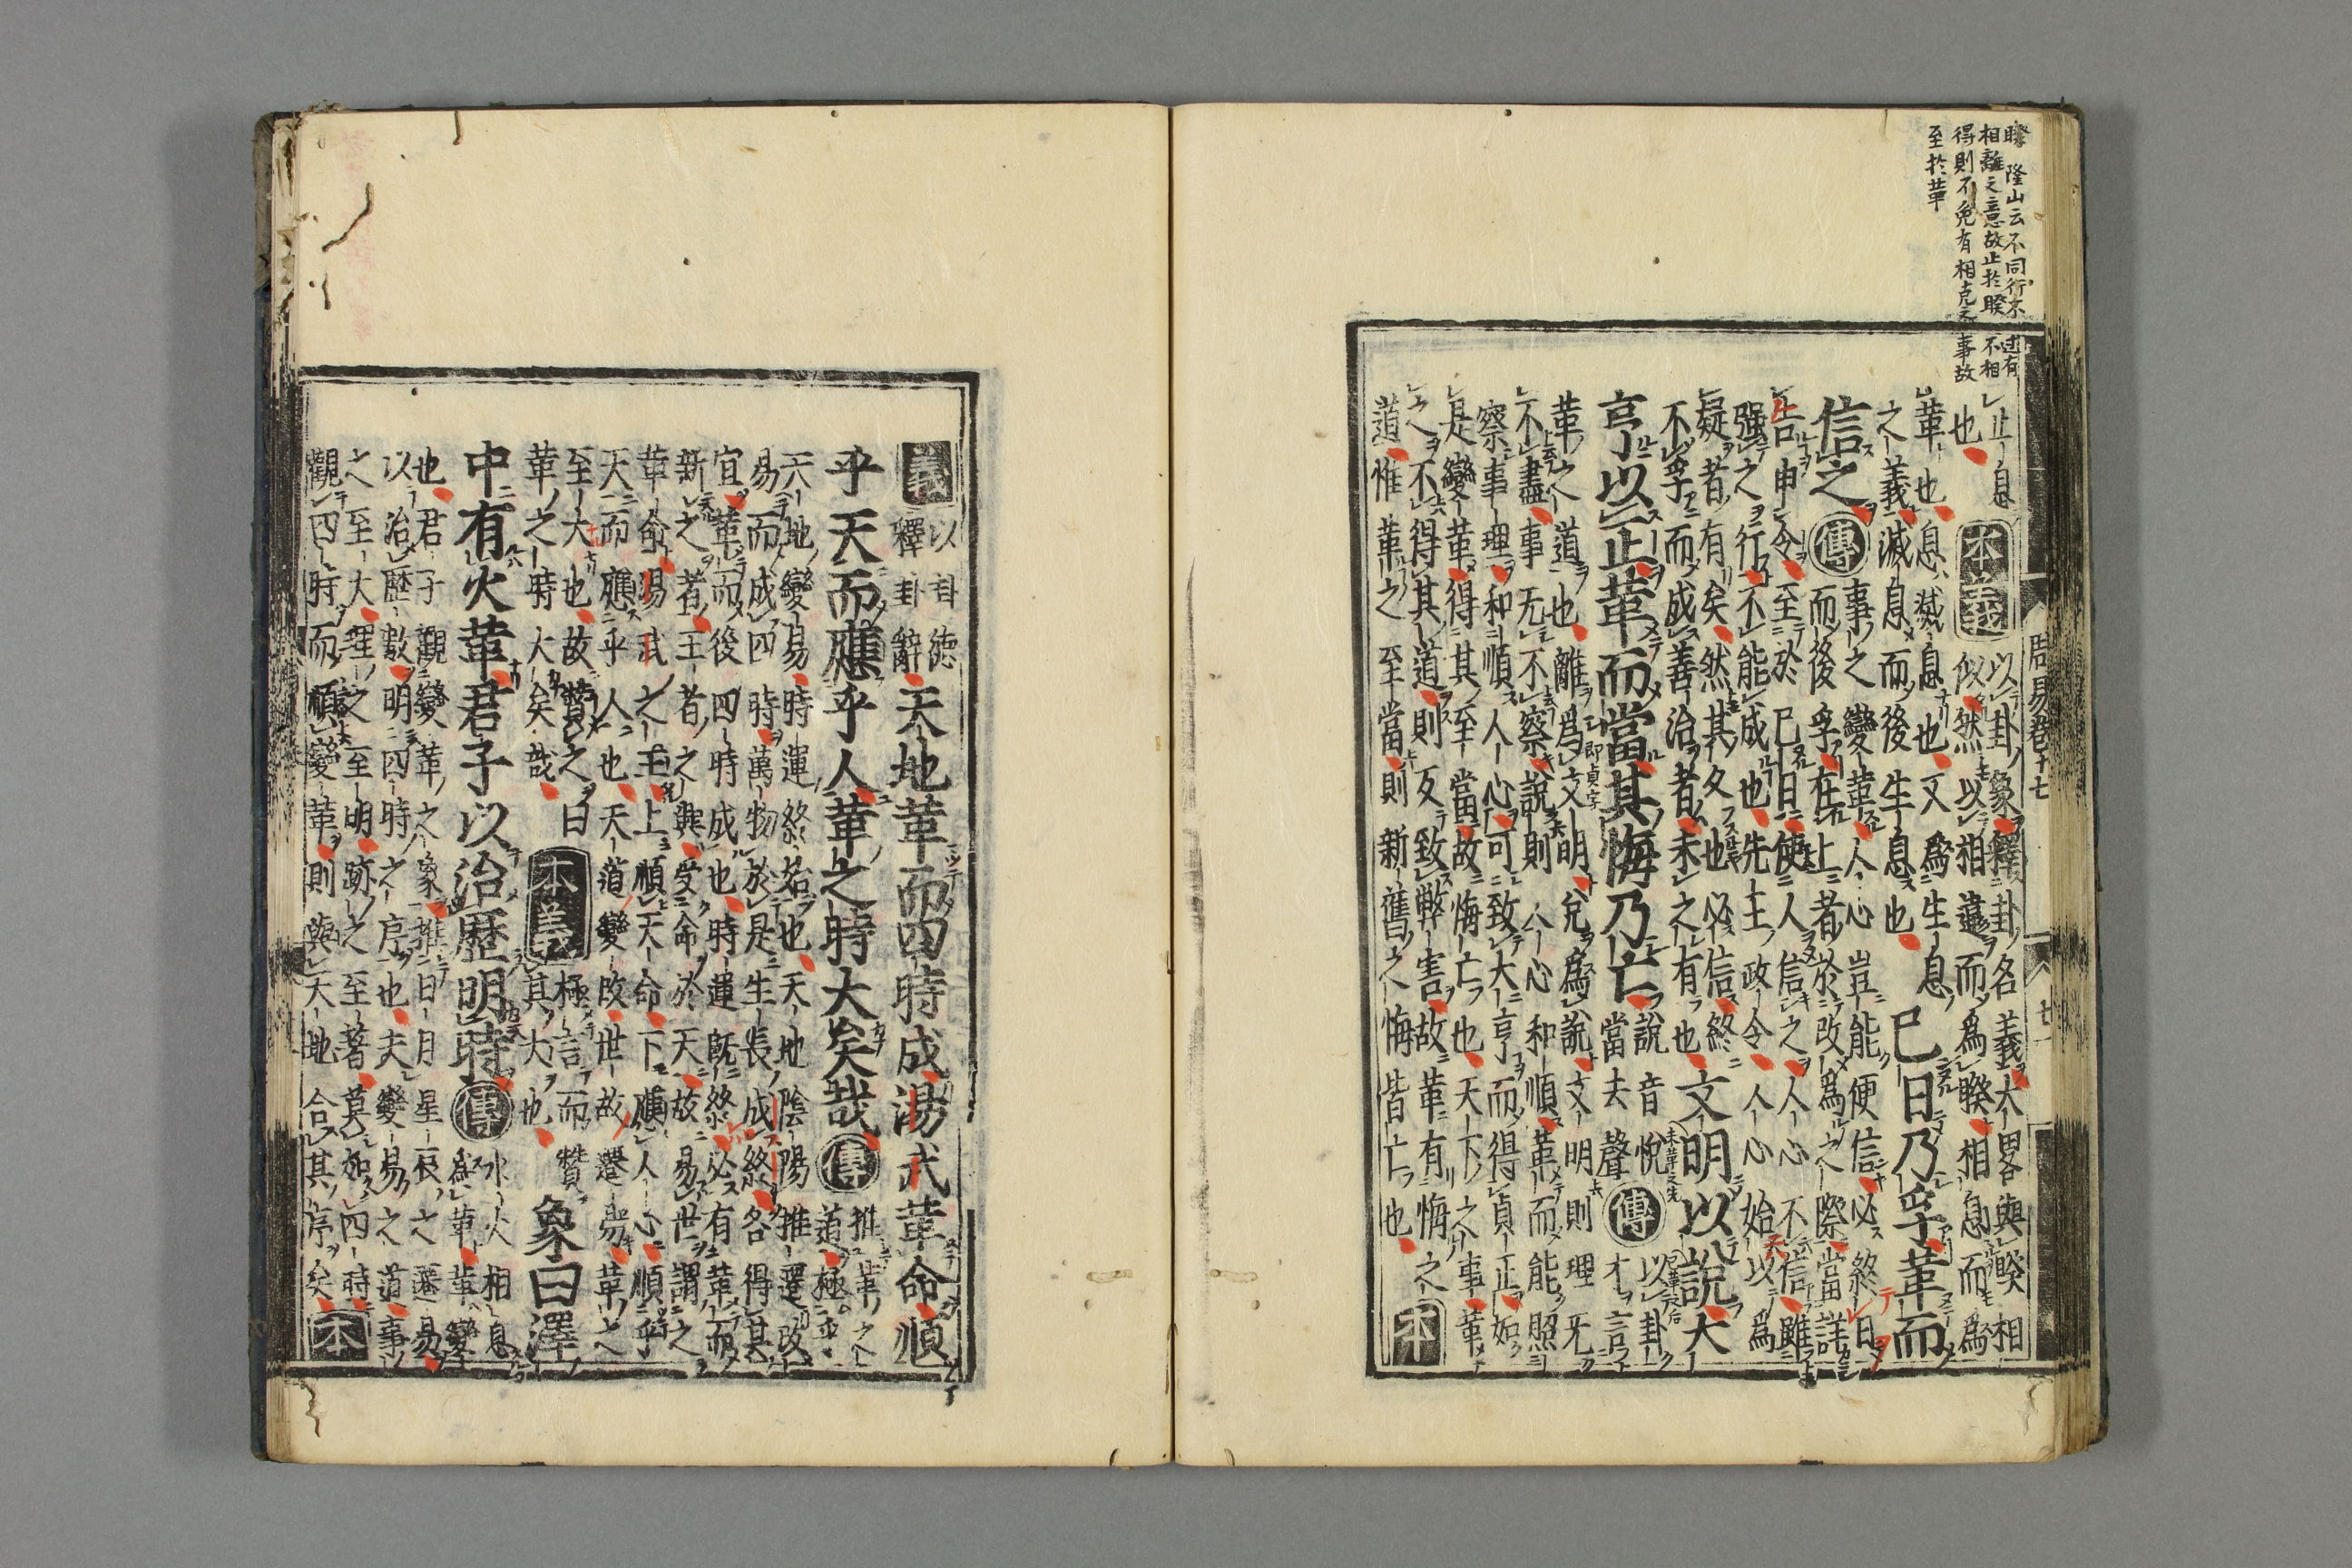 睽 隆山云不同行不過有
相離之意故止於睽不相
得則不免有相克之事故
至於革
周易卷十七
止息 本義 以卦象釋卦名義大畧與睽相
也 似然以相違而爲睽相息而爲
革也息滅息也又爲生息
之義滅息而後生息也
巳日乃孚革而
信之 傳
事之變革人心豈能便信必終日
而後孚在上者於改爲之際當詳
告申令至於巳日使人信之人心不信雖
强之行不能成也先王政令人心始以爲
疑者有矣然其久也必信終
不孚而成善治者未之有也
文明以說大
亨以正革而當其悔乃亡
說音悅
當去聲
傳
以卦
才言
革之道也離爲文明兌爲說文明則理无
不盡事无不察說則人心和順革而能照
察事理和順人心可致大亨而得貞正如
是變革得其至當故悔亡也天下之事革
之不得其道則反致弊害故革有悔之
道惟革之至當則新舊之悔皆亡也
本
義
以卦德
釋卦辭
天地革而四時成湯武革命順
乎天而應乎人革之時大矣哉 傳
推革之
道極乎
天地變易時運終始也天地陰陽推遷改
易而成四時萬物於是生長成終各得其
宜革而後四時成也時運旣終必有革而
新之者王者之興受命於天故易世謂之
革命湯武之王上順天命下應人心順乎
天而應乎人也天道變改世故遷易革之
至大也故贊之曰
革之時大矣哉
本義
極言而贊
其大也
象曰澤
中有火革君子以治歷明時 傳
水火相息
爲革革變
也君子觀變革之象推日月星辰之遷易
以治歷數明四時之序也夫變易之道事
之至大理之至明跡之至著莫如四時
觀四時而順變革則與天地合其序矣
本